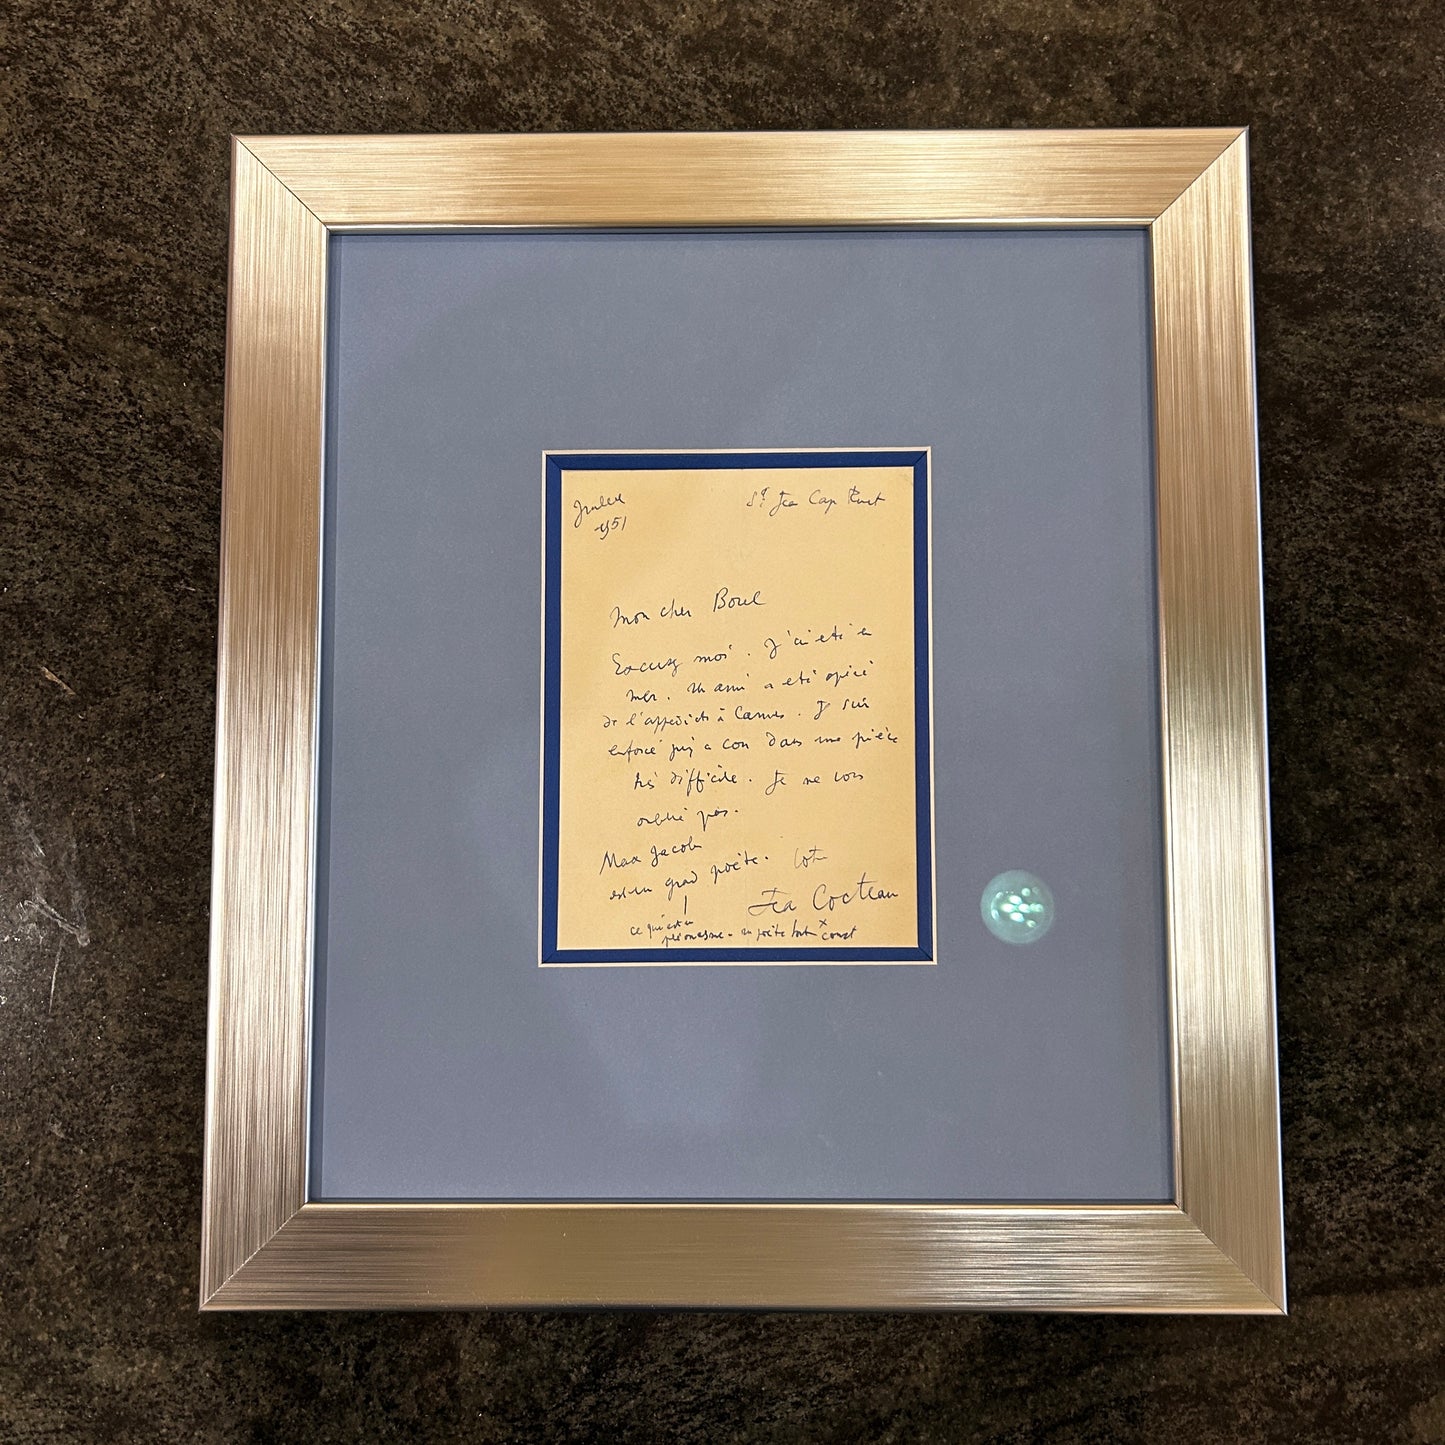 Juillet
1951
St Jea Cap Ferrat
mon cher Borel
Excusez moi. J'ai eté en
mer. Un ami a eté opéré
de l'appendicite à Cannes. Je suis
enfoncé jusqu'a cou dans une pièce
très difficile. Je ne vous
oublie pas.
Max Jacob
est un grand poète. Votre
Jea Cocteau
ce qui est un
- un poète tout court